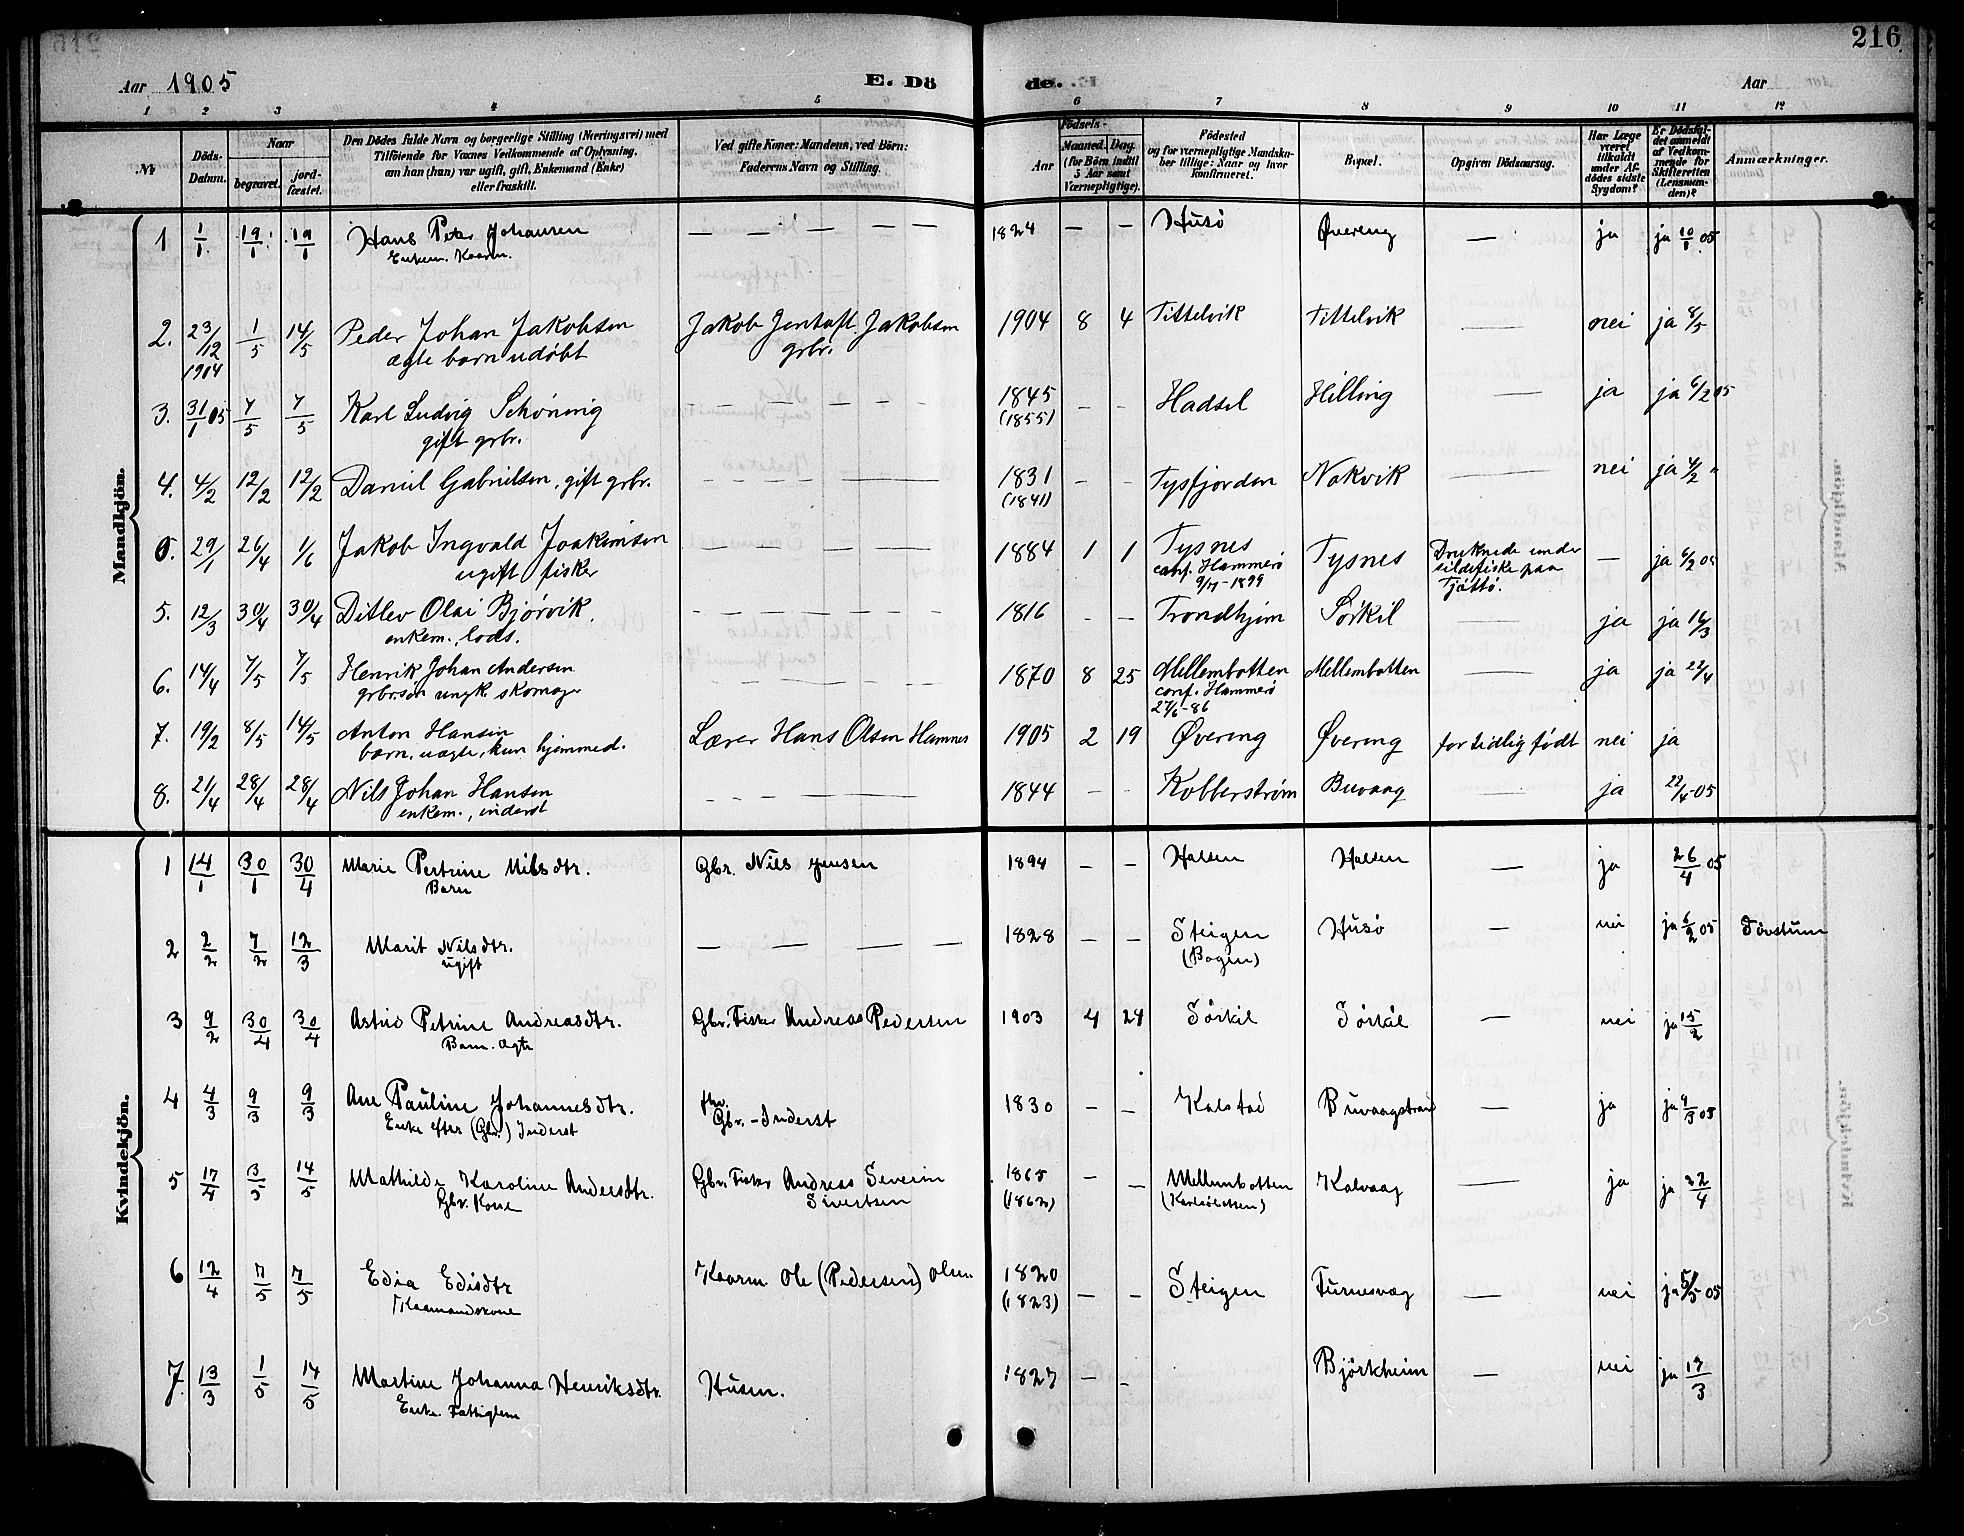 216
Aar 1905 E. Dö
de. Aar
1 2 3 4 5 6 7 8 9 10 11 12
No
Döds-
Datum.
Naar
begravet.
jord-
fæstet.
Den Dödes fulde Navn og borgerlige Stilling (Næringsvei) med
Tilföiende for Voxnes Vedkommende af Oplysning,
om han (hun) var ugift, gift, Enkemand (Enke)
eller fraskilt.
Ved gifte Koner: Mandens, ved Börn:
Faderens Navn og Stilling.
Födsels-
Aar
Maaned. Dag.
(for Börn indtil
5 Aar samt
Værnepligtige).
Födested
og for værnepligtige Mandska-
ber tillige: Naar og hvor
konfirmeret.
Bopæl.
Opgiven Dödsaarsag.
Har Læge
været
tilkaldt
under Af-
dödes sidste
Sygdom?
Er Dödsfal-
det anmeldt
af Vedkom-
mende for
Skifteretten
(Lensman-
den)?
Anmærkninger.
Mandkjön.
1 1/1. 19/1. 19/1 Hans Peter Johansen — — — — — 1824 — — Husö Øvereng — ja ja 10/1 05
Enkem. Kaarm.
2. 23/12 1/5 14/5 Peder Johan Jakobsen Jakob Jentoft Jakobsen 1904 8 4 Tittelvik Tittelvik — nei ja 8/5
1904 ægte barn udöbt grbr.
3. 31/1 05 7/5 7/5 Karl Ludvig Schöning — — — 1845 — — Hadsel Hilling — ja ja 6/2 05
gift grbr. (1855)
4. 4/2 12/2 12/2 Daniel Gabrielsen, gift grbr. — — — 1831 — — Tysfjorden Nokvik — nei ja 4/2 "
(1841)
5. 29/1 26/4 1/6 Jakob Ingvald Joakimsen — — — 1884 1 1 Tysnes Tysnes Druknede under — ja 6/2 05
ugift fisker conf. Hammerö sildefiske paa
9/7-1899 Tjöttö.
5. 12/3 30/4 30/4 Ditlev Olai Bjørvik. — — — 1816 — — Trondhjem Sörkil — ja ja 16/3
enkem., lods.
6. 14/4 7/5 7/5 Henrik Johan Andersen — — — 1870 8 25 Mellembotten Mellembotten — ja ja 22/4
grbr.sön ungk. skomager conf. Hammerö
27/6-86
7. 19/2 8/5 14/5 Anton Hansen Lærer Hans Olsen Hamnes 1905 2 19 Øvereng Øvereng for tidlig født nei ja
barn, uægte, kun hjemmed.
8. 21/4 28/4 28/4 Nils Johan Hansen — — — 1844 — — Kobberstrøm Buvaag — ja 22/4-05
enkem., inderst
Kvindekjön.
1 14/1 30/1 30/4 Marie Petrine Nilsdtr. Gbr. Nils Jensen 1894 — — Halsen Halsen — ja 26/4 05
Barn
2 2/2 7/2 12/3 Marit Nilsdtr. — — — — 1828 — — Steigen Husö — nei ja 6/2 05 Dövstum
ugift (Bogen)
3 9/2 30/4 30/4 Astrid Petrine Andreasdtr. Gbr. Fisker Andreas Pedersen 1903 4 24 Sörkil Sörkil — nei ja 15/2
Barn. Ægte
4 4/3 9/3 9/3 Ane Pauline Johannesdtr. fhv. 1830 — — Kalstad Buvaagstrand — ja ja 9/3 05
Enke efter (Gbr.) Inderst Gbr. - Inderst
5 17/4 3/5 14/5 Mathilde Karoline Andersdtr. Gbr. Fisker Andreas Severin 1865 — — Mellembotten Kalvaag — ja ja 22/4
Gbr. Kone Sivertsen (1862) (Karlsöbotten)
6 12/4 7/5 7/5 Edia Edisdtr Kaarm Ole (Pedersen) Olsen 1820 — — Steigen Furnesvag nei ja 5/5 05
Kaarmandskone (1823)
7 13/3 1/5 14/5 Martine Johanna Henriksdtr. Husm. 1827 — — Björkheim — nei ja 17/3
Enke. Fattiglem